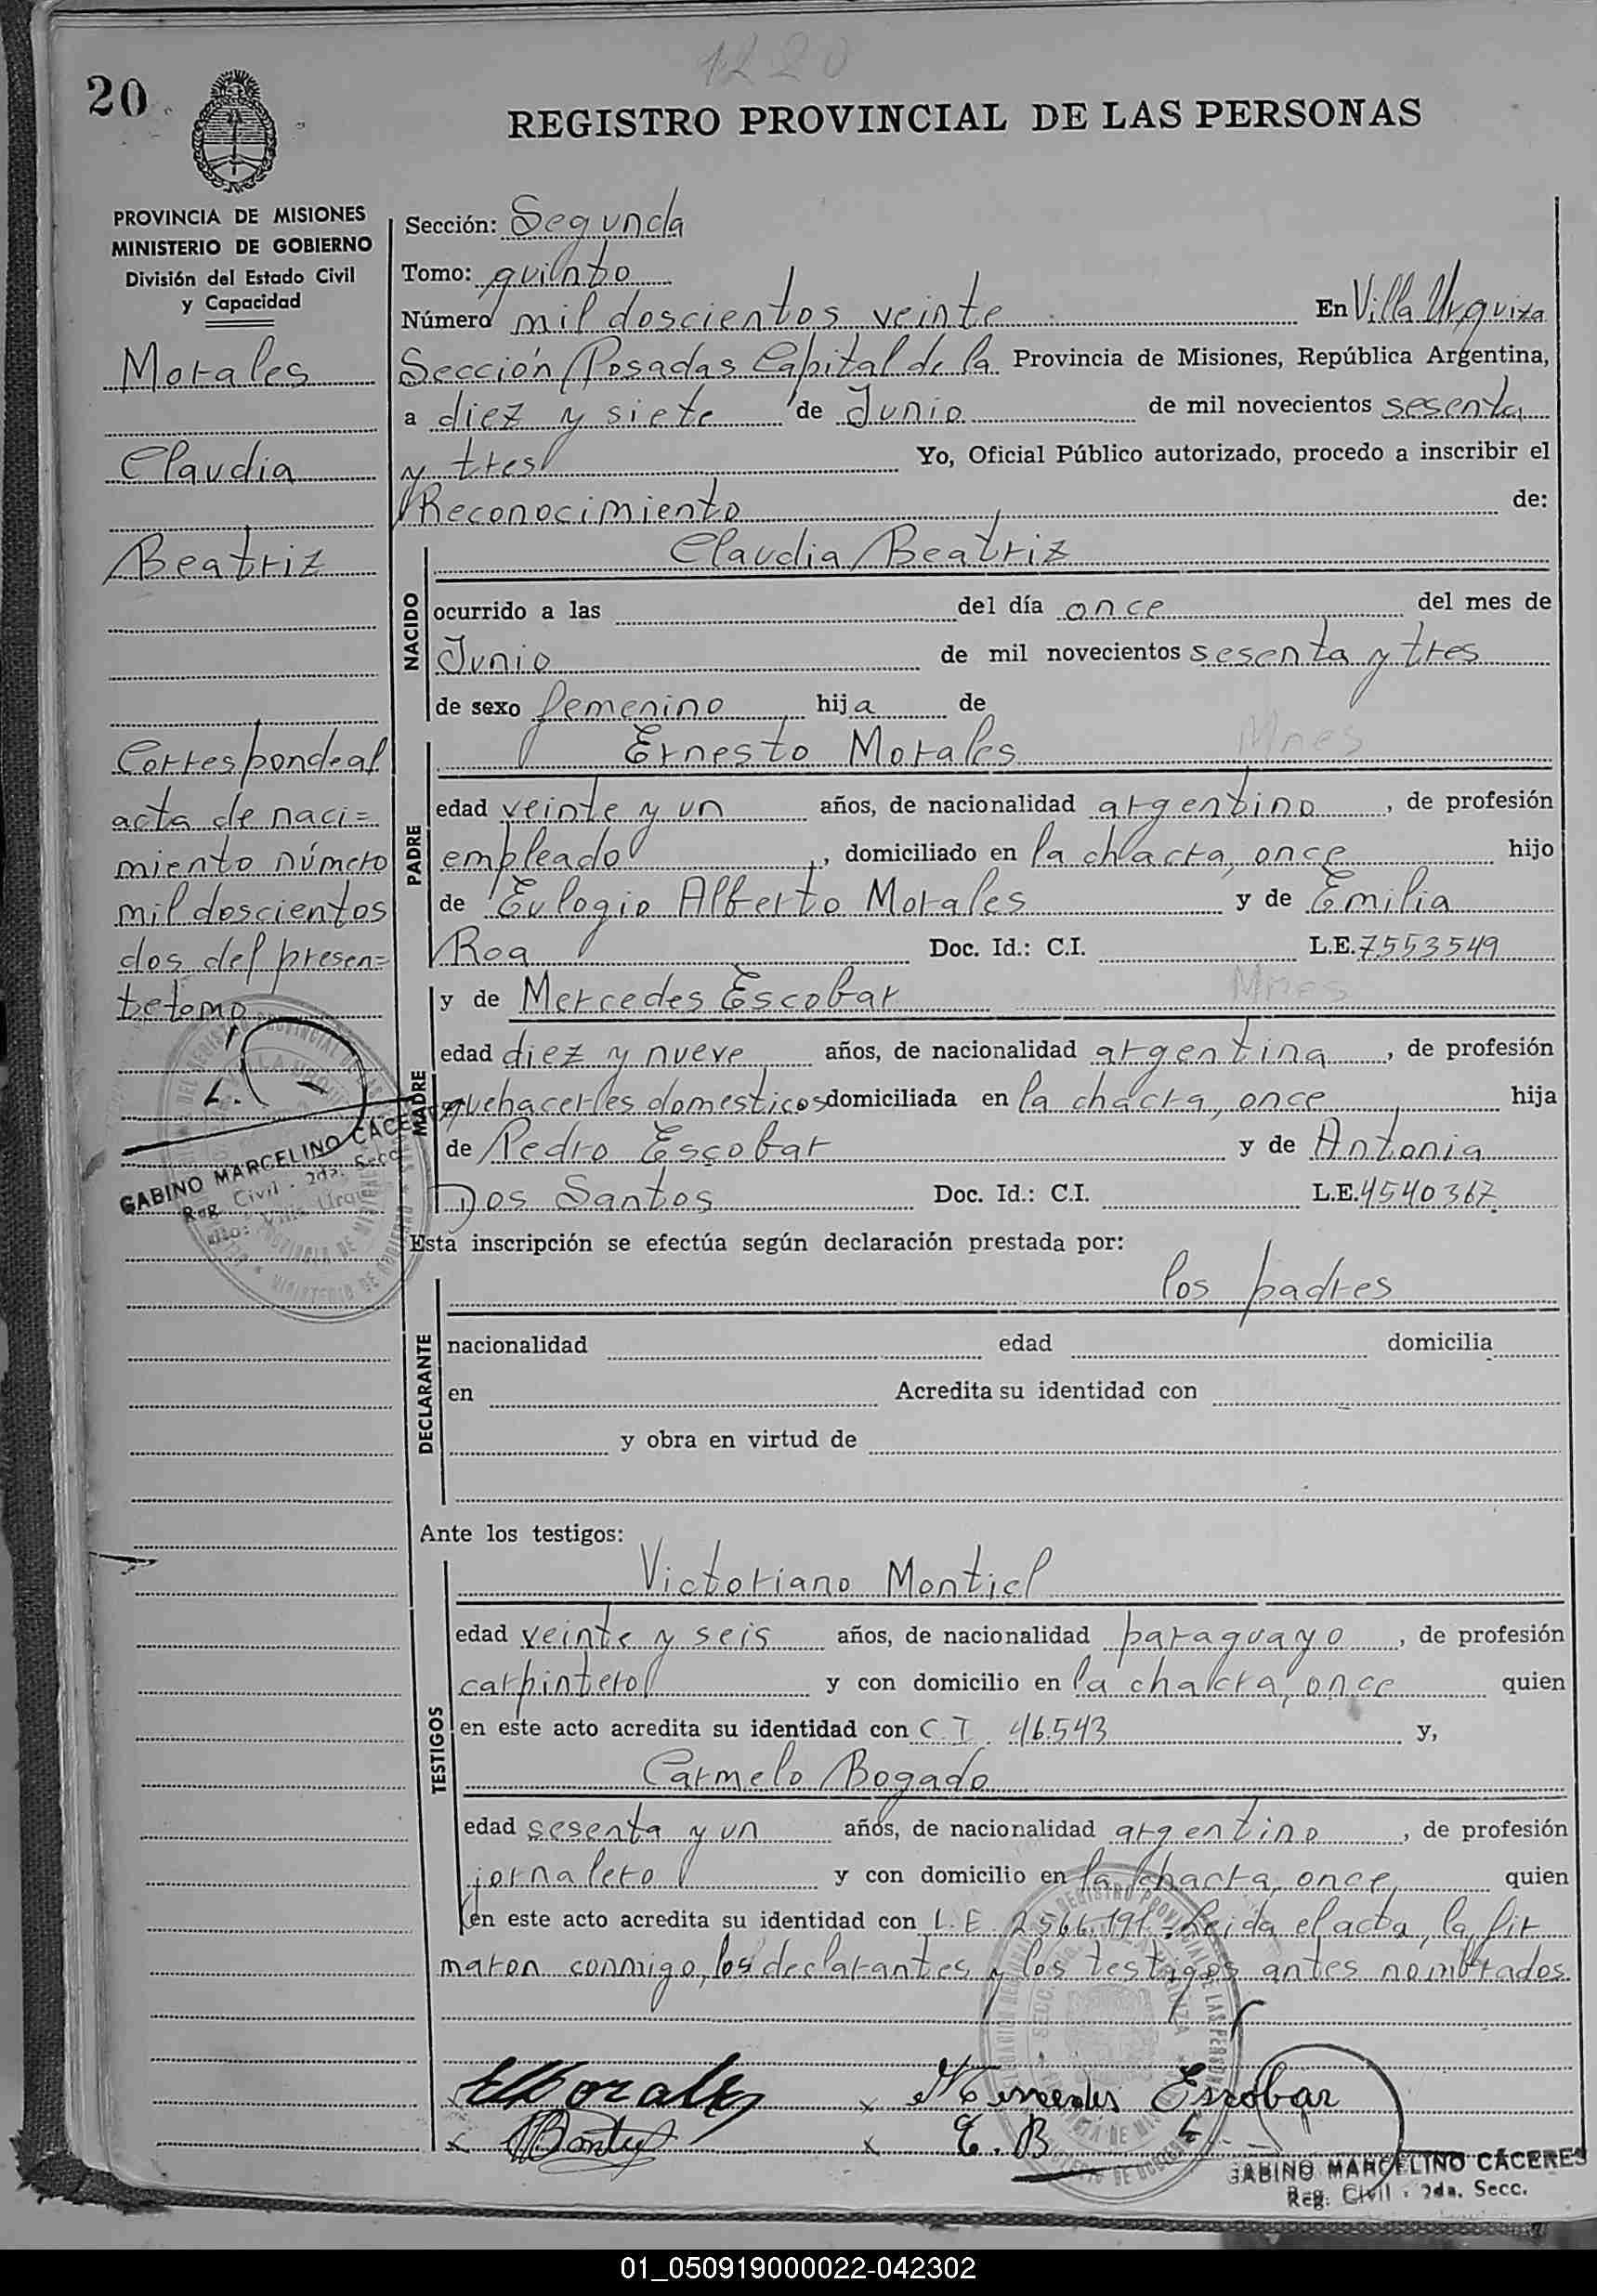 1220
20
REGISTRO PROVINCIAL DE LAS PERSONAS
PROVINCIA DE MISIONES
MINISTERIO DE GOBIERNO
División del Estado Civil
y Capacidad
Morales
Claudia
Beatriz
Correspondeal
acta de naci=
miento número
mil doscientos
dos del presen=
te tomo
GABINO MARCELINO CACE
Reg. Civil - 2da. Secc
Sección: Segunda
Tomo: quinto
Número mil doscientos veinte En Villa Urquiza
Sección Posadas Capital de la Provincia de Misiones, República Argentina,
a diez y siete de Junio de mil novecientos sesenta
y tres Yo, Oficial Público autorizado, procedo a inscribir el
Reconocimiento de:
NACIDO
Claudia Beatriz
ocurrido a las del día once del mes de
Junio de mil novecientos sesenta y tres
de sexo femenino hija de
PADRE
Ernesto Morales Mnes
edad veinte y un años, de nacionalidad argentino, de profesión
empleado, domiciliado en la chacra, once hijo
de Eulogio Alberto Morales y de Emilia
Roa Doc. Id.: C.I. L.E. 7553549
MADRE
y de Mercedes Escobar Mnes
edad diez y nueve años, de nacionalidad argentina, de profesión
quehacerles domesticos domiciliada en la chacra, once hija
de Pedro Escobar y de Antonia
Dos Santos Doc. Id.: C.I. L.E. 4540367
Esta inscripción se efectúa según declaración prestada por:
DECLARANTE
los padres
nacionalidad edad domicilia
en Acredita su identidad con
y obra en virtud de
Ante los testigos:
TESTIGOS
Victoriano Montiel
edad veinte y seis años, de nacionalidad paraguayo, de profesión
carpintero y con domicilio en la chalcra, once quien
en este acto acredita su identidad con C.I. 46.543 y,
Carmelo Bogado
edad sesenta y un años, de nacionalidad argentino, de profesión
jornalero y con domicilio en la chacra, once, quien
en este acto acredita su identidad con L.E. 2566.191.- Leida el acta, la fir
maron conmigo, los declarantes y los testigos antes nombrados.
EMorales x Mercedes Escobar
x x C. B
GABINO MARCELINO CÁCERES
Reg. Civil - 2da. Secc.
01_050919000022-042302